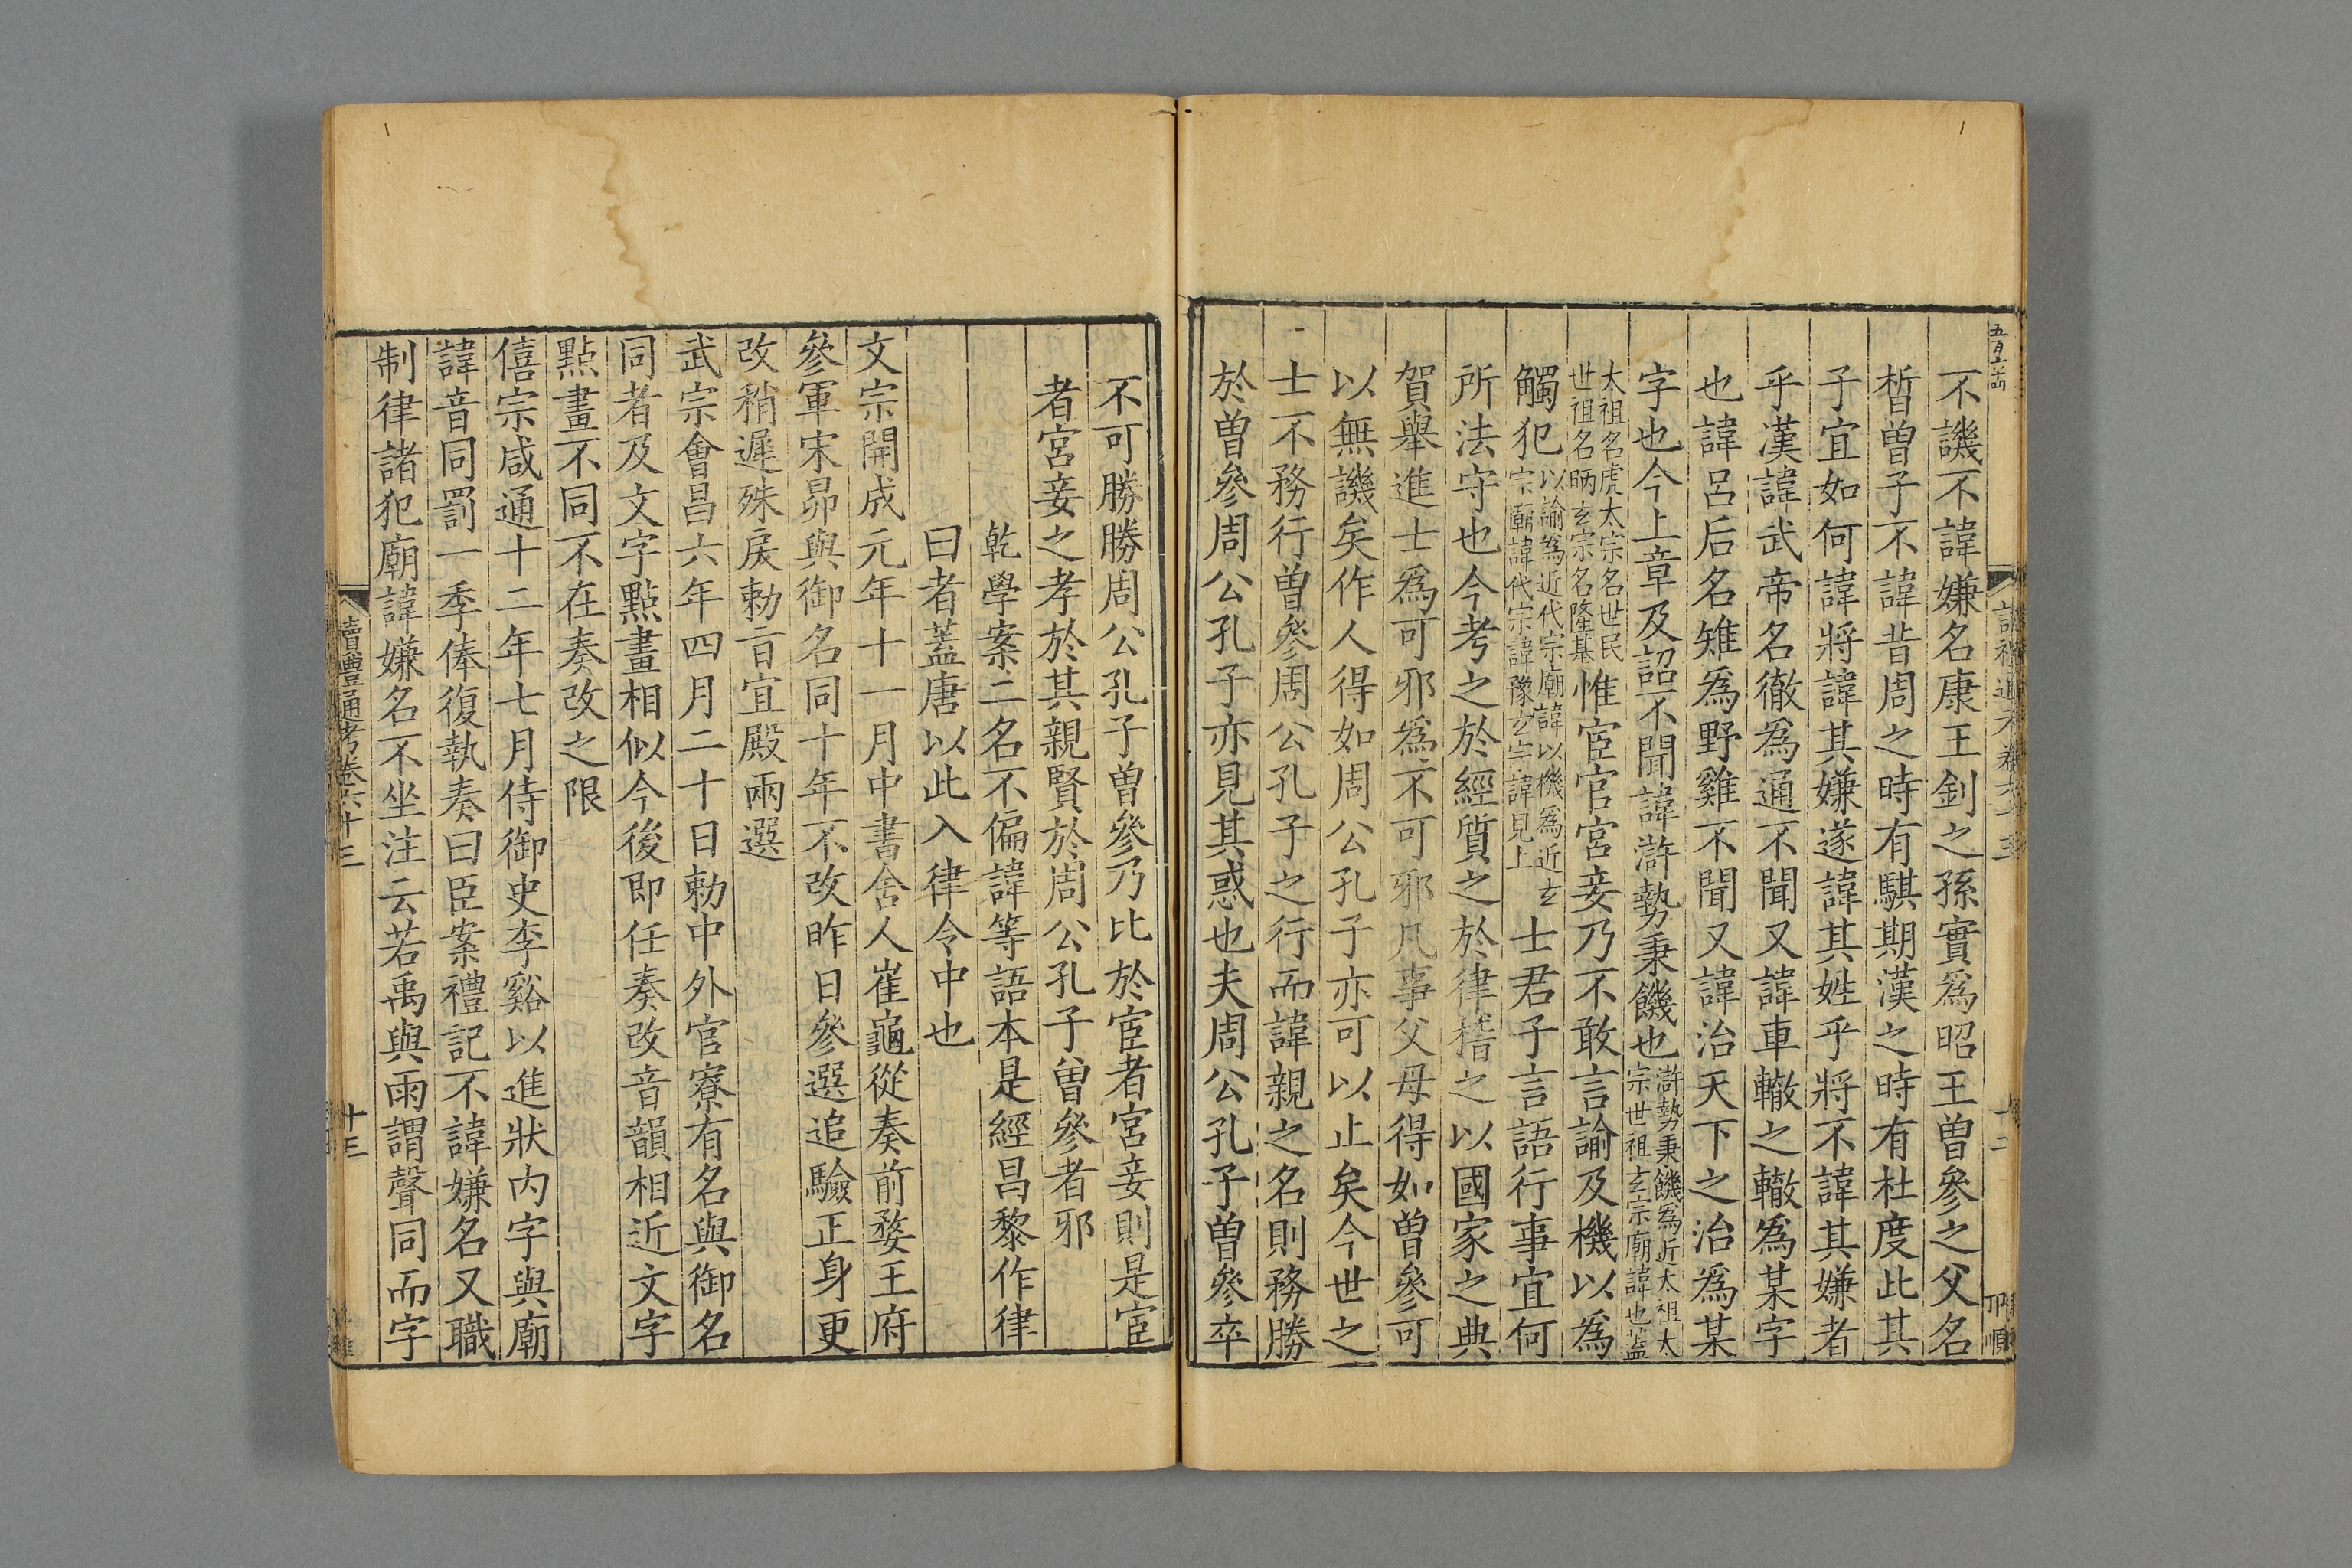 不譏不諱嫌名康王釗之孫實爲昭王曾參之父名
晳曾子不諱昔周之時有騏期漢之時有杜度此其
子宜如何諱將諱其嫌遂諱其姓乎將不諱其嫌者
乎漢諱武帝名徹爲通不聞又諱車轍之轍爲某字
也諱呂后名雉爲野雞不聞又諱治天下之治爲某
字也今上章及詔不聞諱滸勢秉饑也滸勢秉饑爲近太祖太宗世祖玄宗廟諱也蓋
太祖名虎太宗名世民世祖名昞玄宗名隆基惟宦官宮妾乃不敢言諭及機以爲
觸犯以諭爲近代宗廟諱以機爲近玄宗廟諱代宗諱豫玄宗諱見上士君子言語行事宜何
所法守也今考之於經質之於律稽之以國家之典
賀舉進士爲可邪爲不可邪凡事父母得如曾參可
以無譏矣作人得如周公孔子亦可以止矣今世之
士不務行曾參周公孔子之行而諱親之名則務勝
於曾參周公孔子亦見其惑也夫周公孔子曾參卒
不可勝勝周公孔子曾參乃比於宦者宮妾則是宦
者宮妾之孝於其親賢於周公孔子曾參者邪
乾學案二名不偏諱等語本是經昌黎作律
曰者蓋唐以此入律令中也
文宗開成元年十一月中書舍人崔龜從奏前婺王府
參軍宋昂與御名同十年不改昨日參選追驗正身更
改稍遲殊戾勅旨宜殿兩選
武宗會昌六年四月二十日勅中外官寮有名與御名
同者及文字點畫相似今後即任奏改音韻相近文字
點畫不同不在奏改之限
僖宗咸通十二年七月侍御史李谿以進狀內字與廟
諱音同罰一季俸復執奏曰臣案禮記不諱嫌名又職
制律諸犯廟諱嫌名不坐注云若禹與雨謂聲同而字
讀禮通考卷六十三
十三